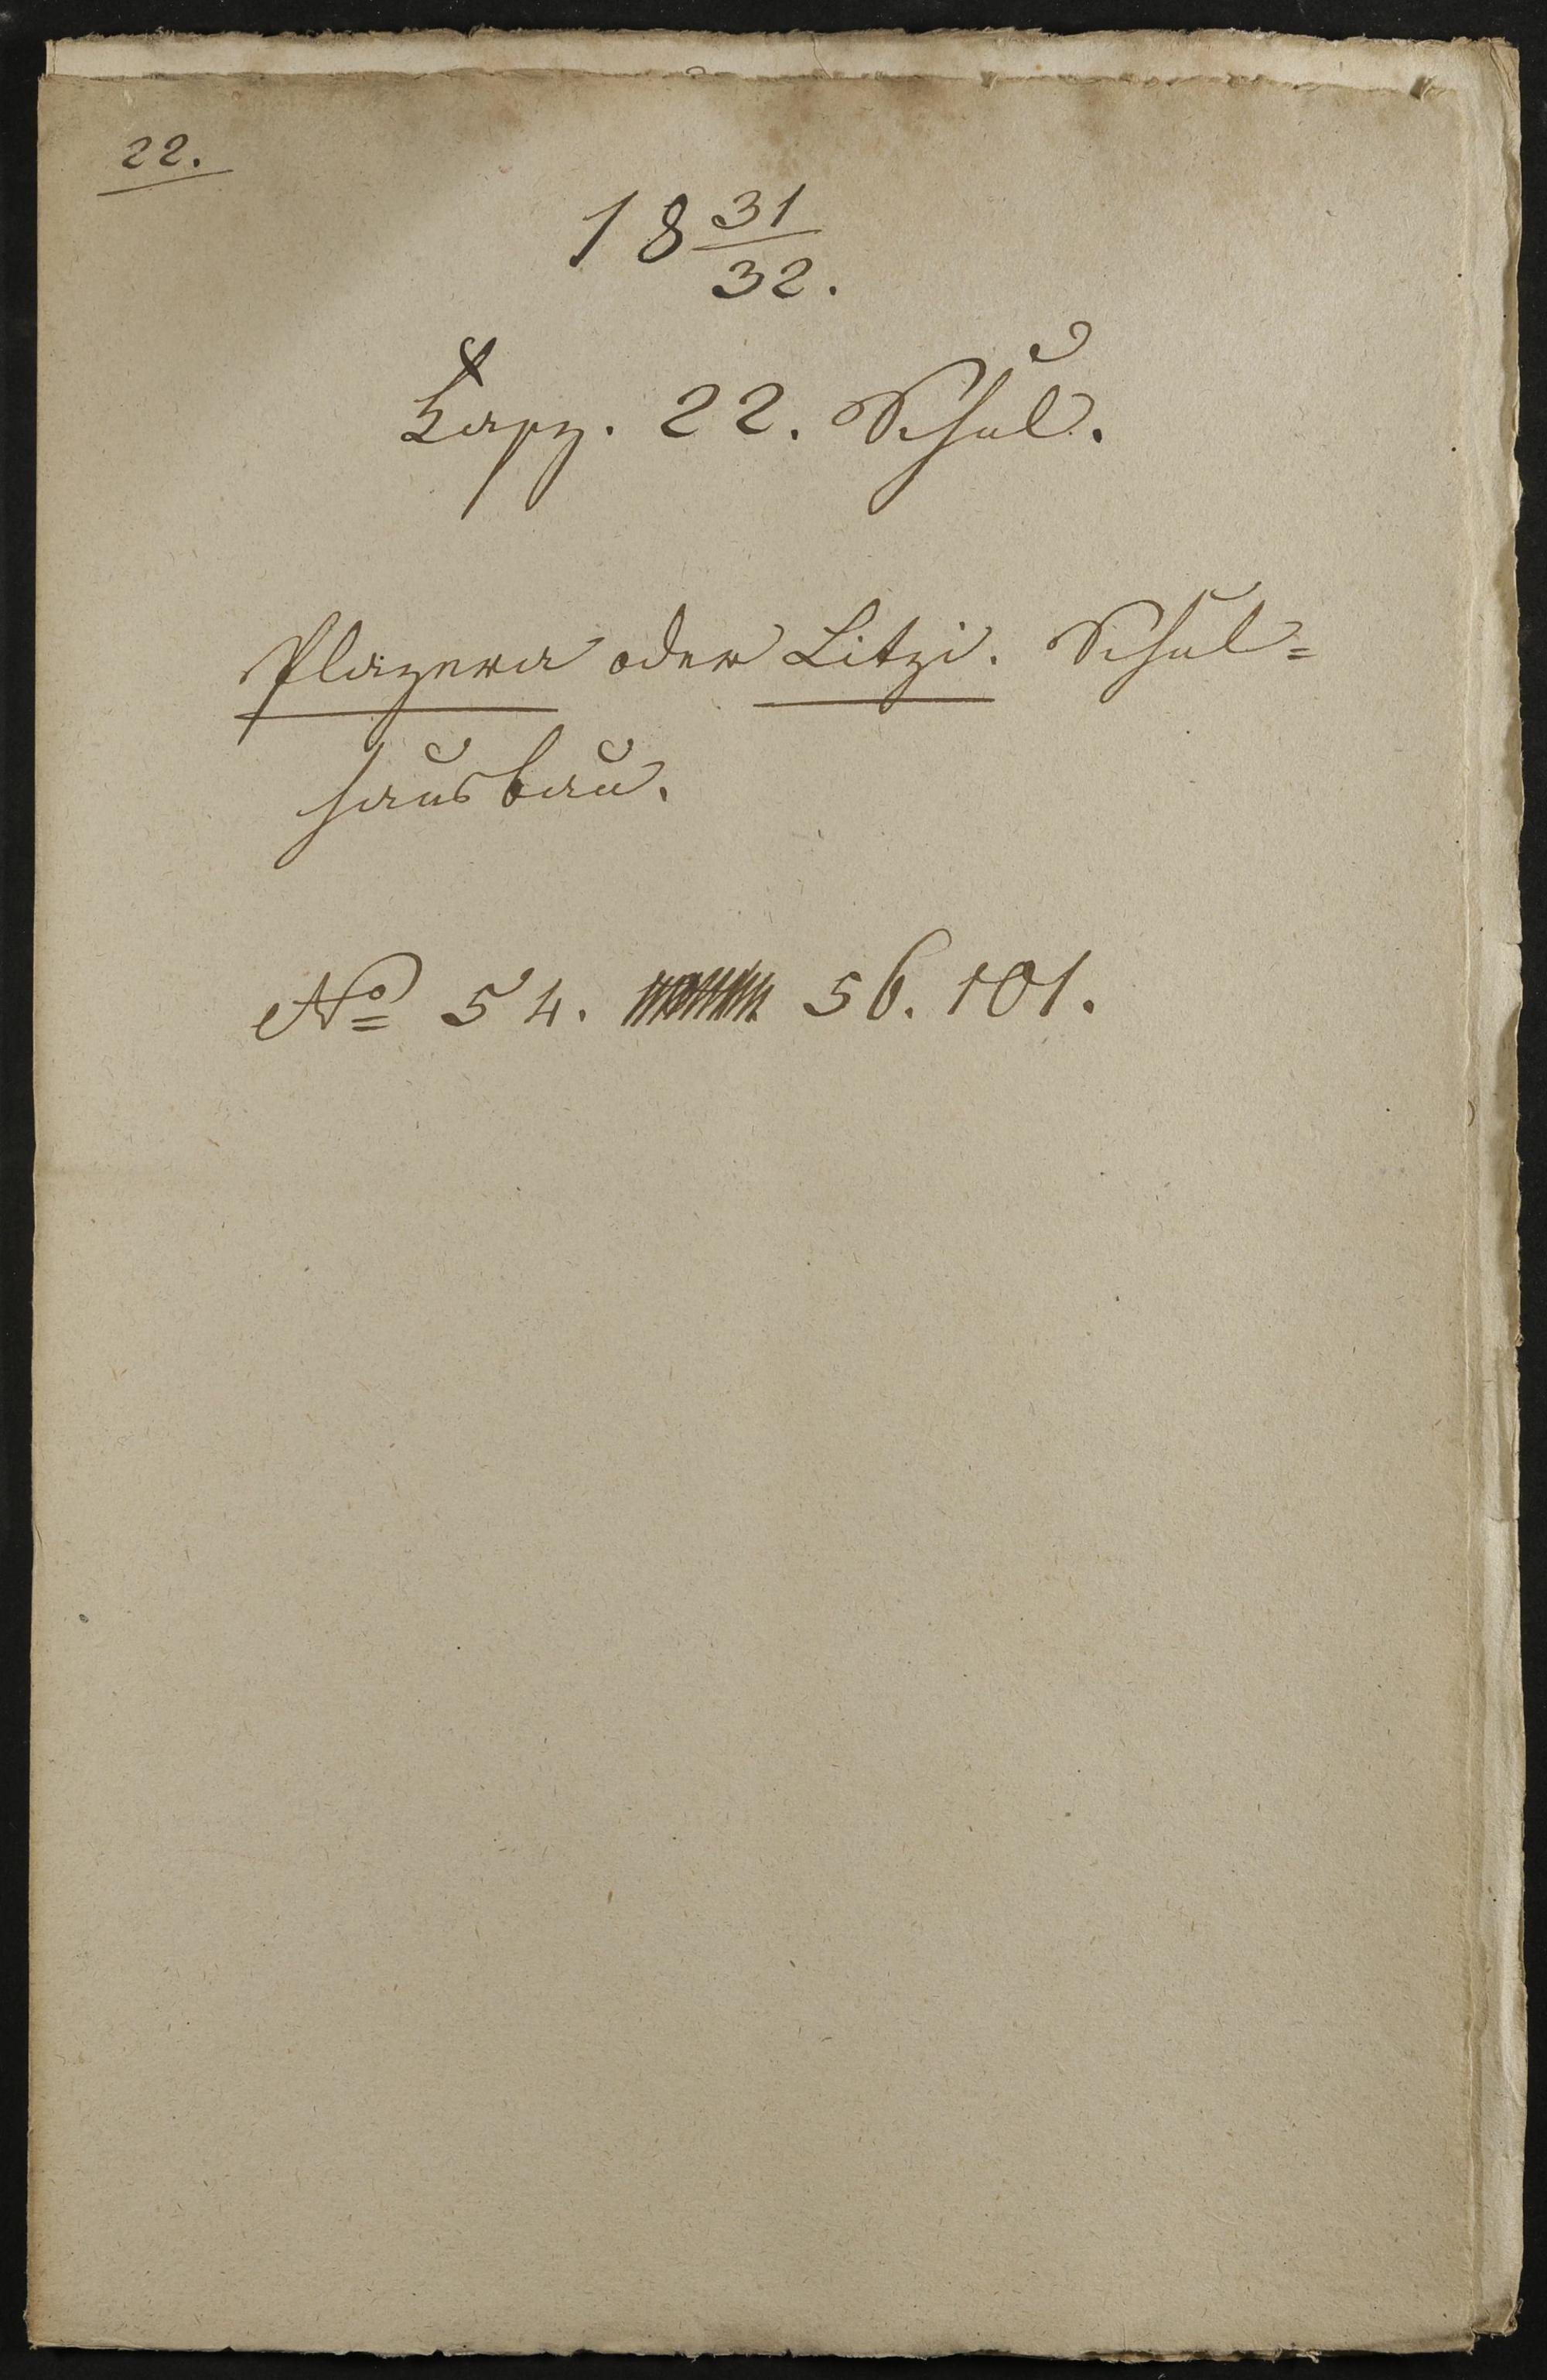 22.
18 31/32.
Fasz. 22. Schul.
Plazera oder Litzi. Schul=
hausbau.
No 54. 56. 101.